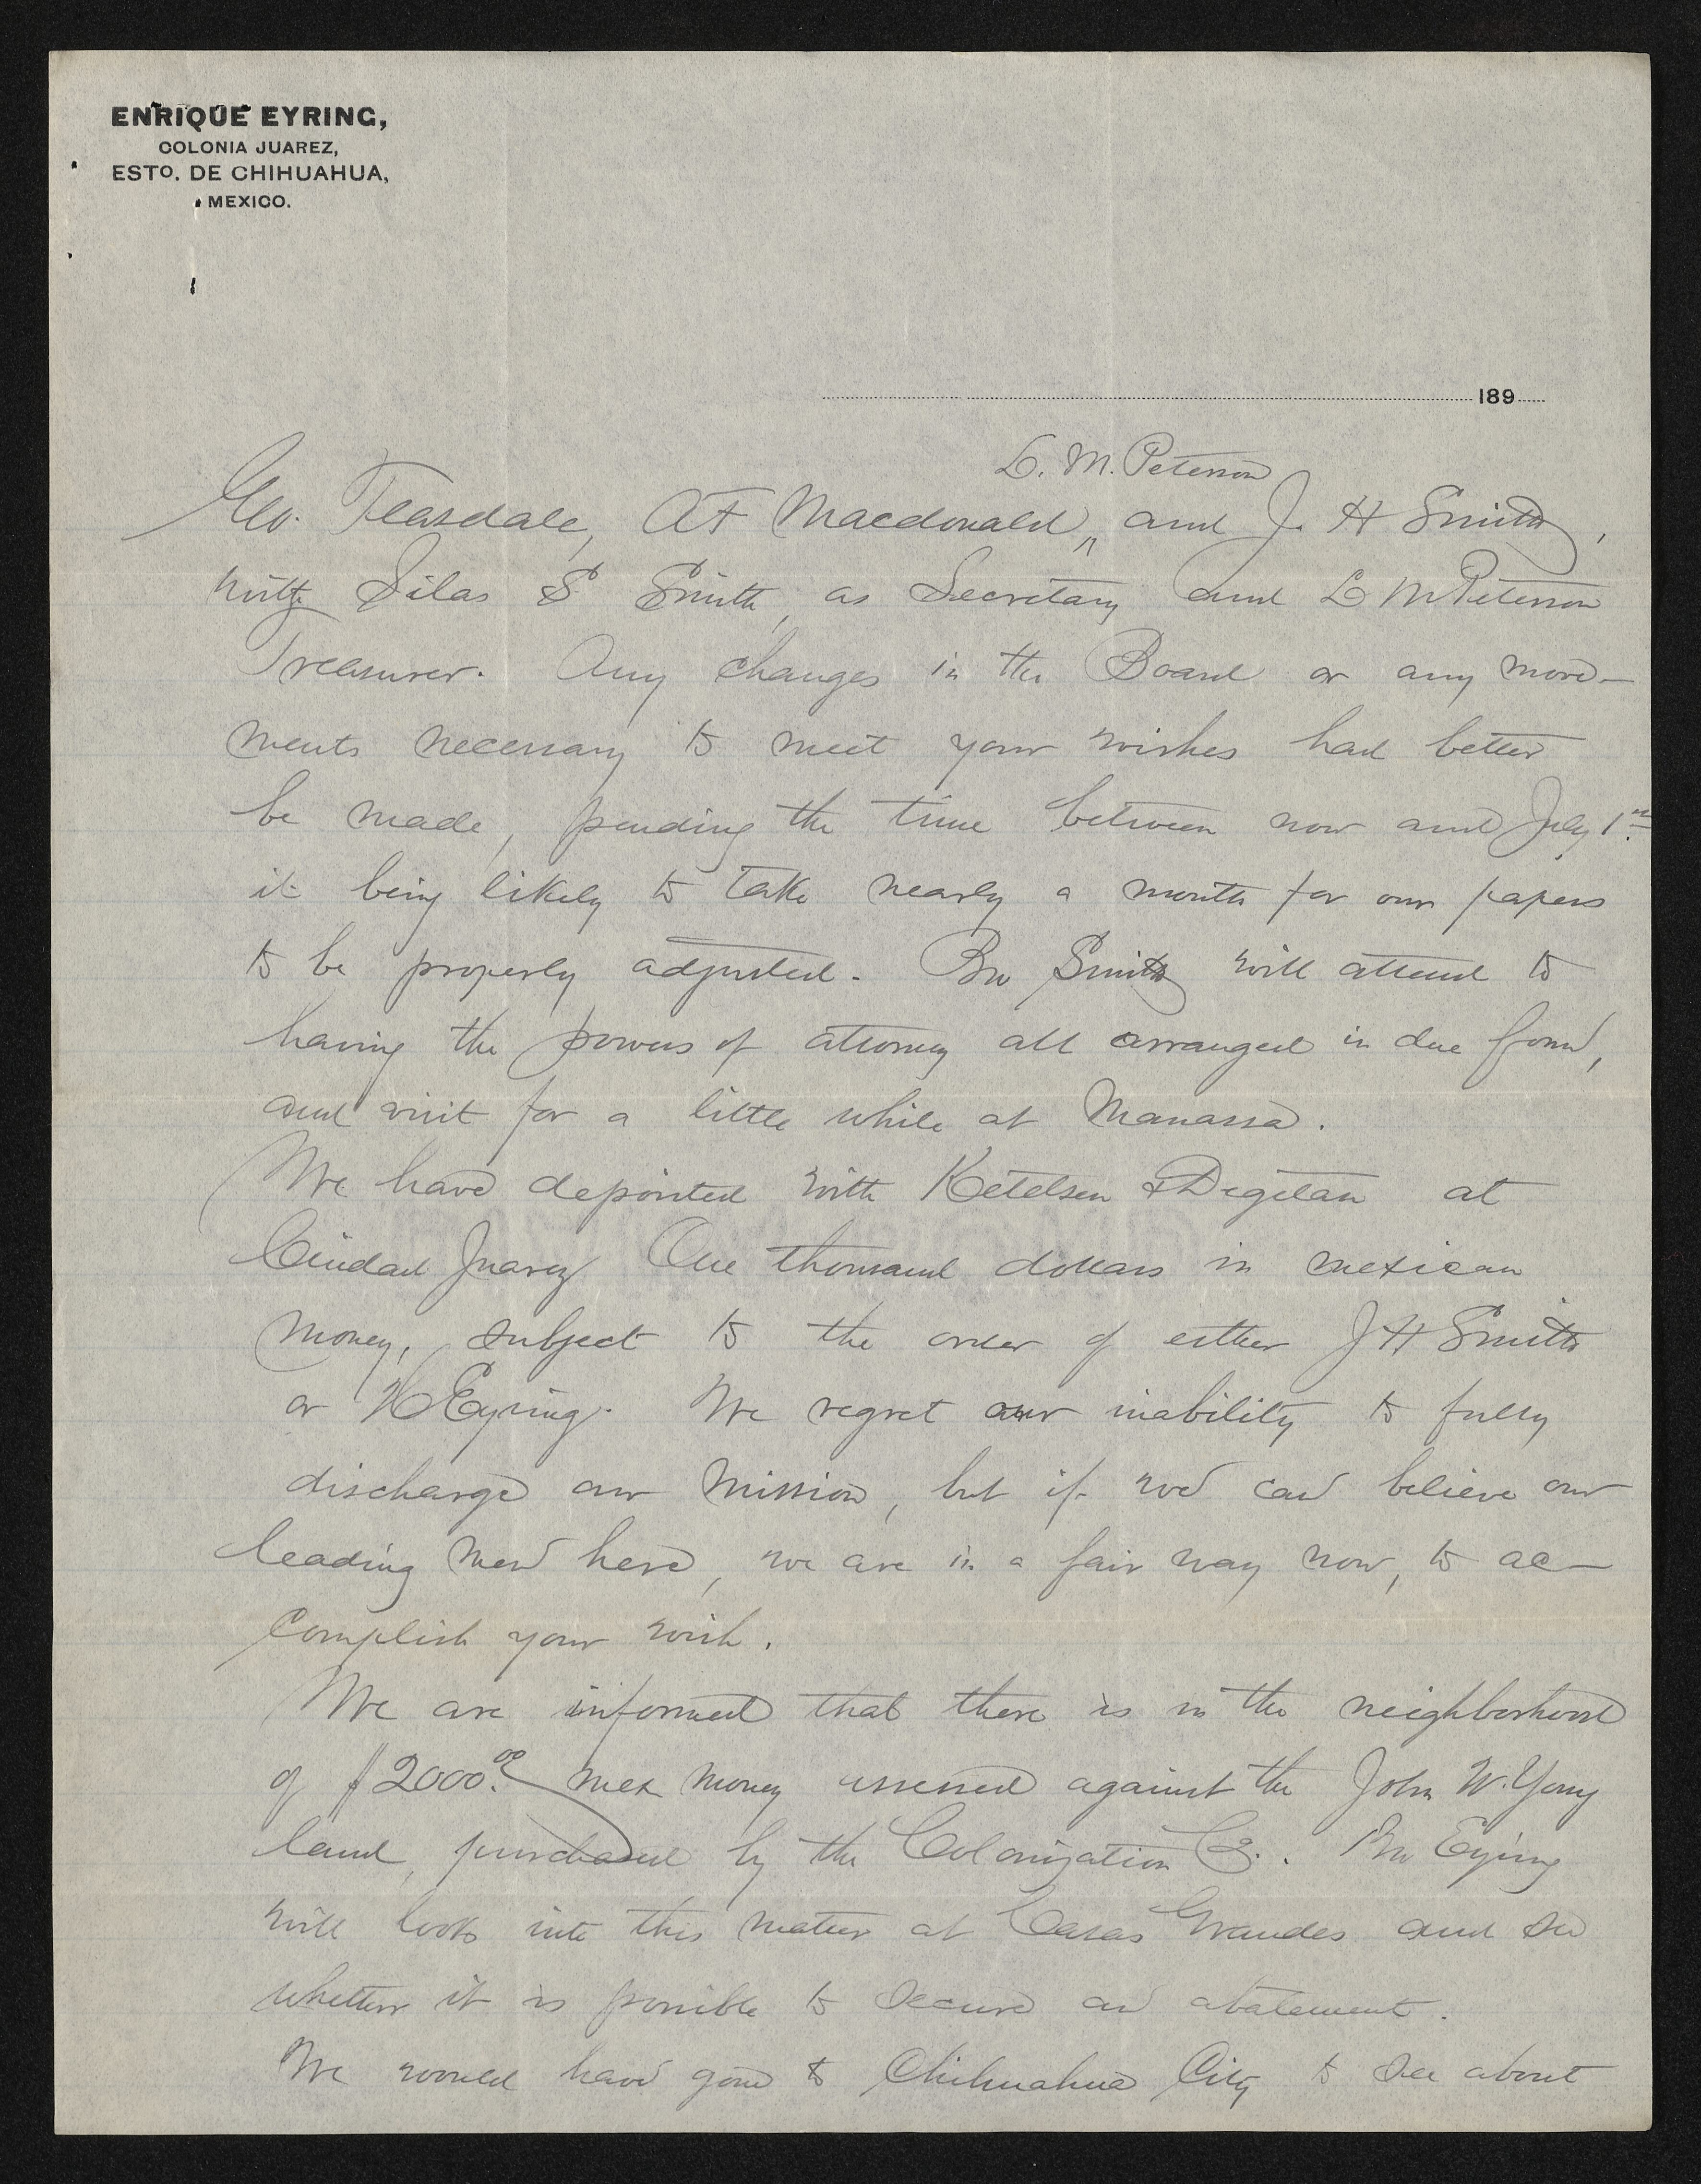 ENRIQUE EYRING,
COLONIA JUAREZ,
ESTO. DE CHIHUAHUA,
MEXICO.
189
L. M. Peterson
Geo. Teasdale, AF Macdonald, and J. H Smith,
with Silas S Smith, as Secretary and L M Peterson
Treasurer. Any changes in the Board or any move-
ments necessary to meet your wishes had better
be made, pending the time between now and July 1st.
it being likely to take nearly a month for our papers
to be properly adjusted. Bro Smith will attend to
having the powers of attorney all arranged in due form,
and visit for a little while at Manassa.
We have deposited with Ketelsen & Degetau at
Ciudad Juarez One thousand dollars in mexican
money, subject to the order of either J H Smith
or H Eyring. We regret our inability to fully
discharge our mission, but if we can believe our
leading men here, we are in a fair way now, to ac-
complish your wish.
We are informed that there is in the neighborhood
of $2000.00 mex money assessed against the John W. Young
land, purchased by the Colonization Co. Bro Eyring
will look into this matter at Casas Grandes and see
whether it is possible to secure an abatement.
We would have gone to Chihuahua City to see about